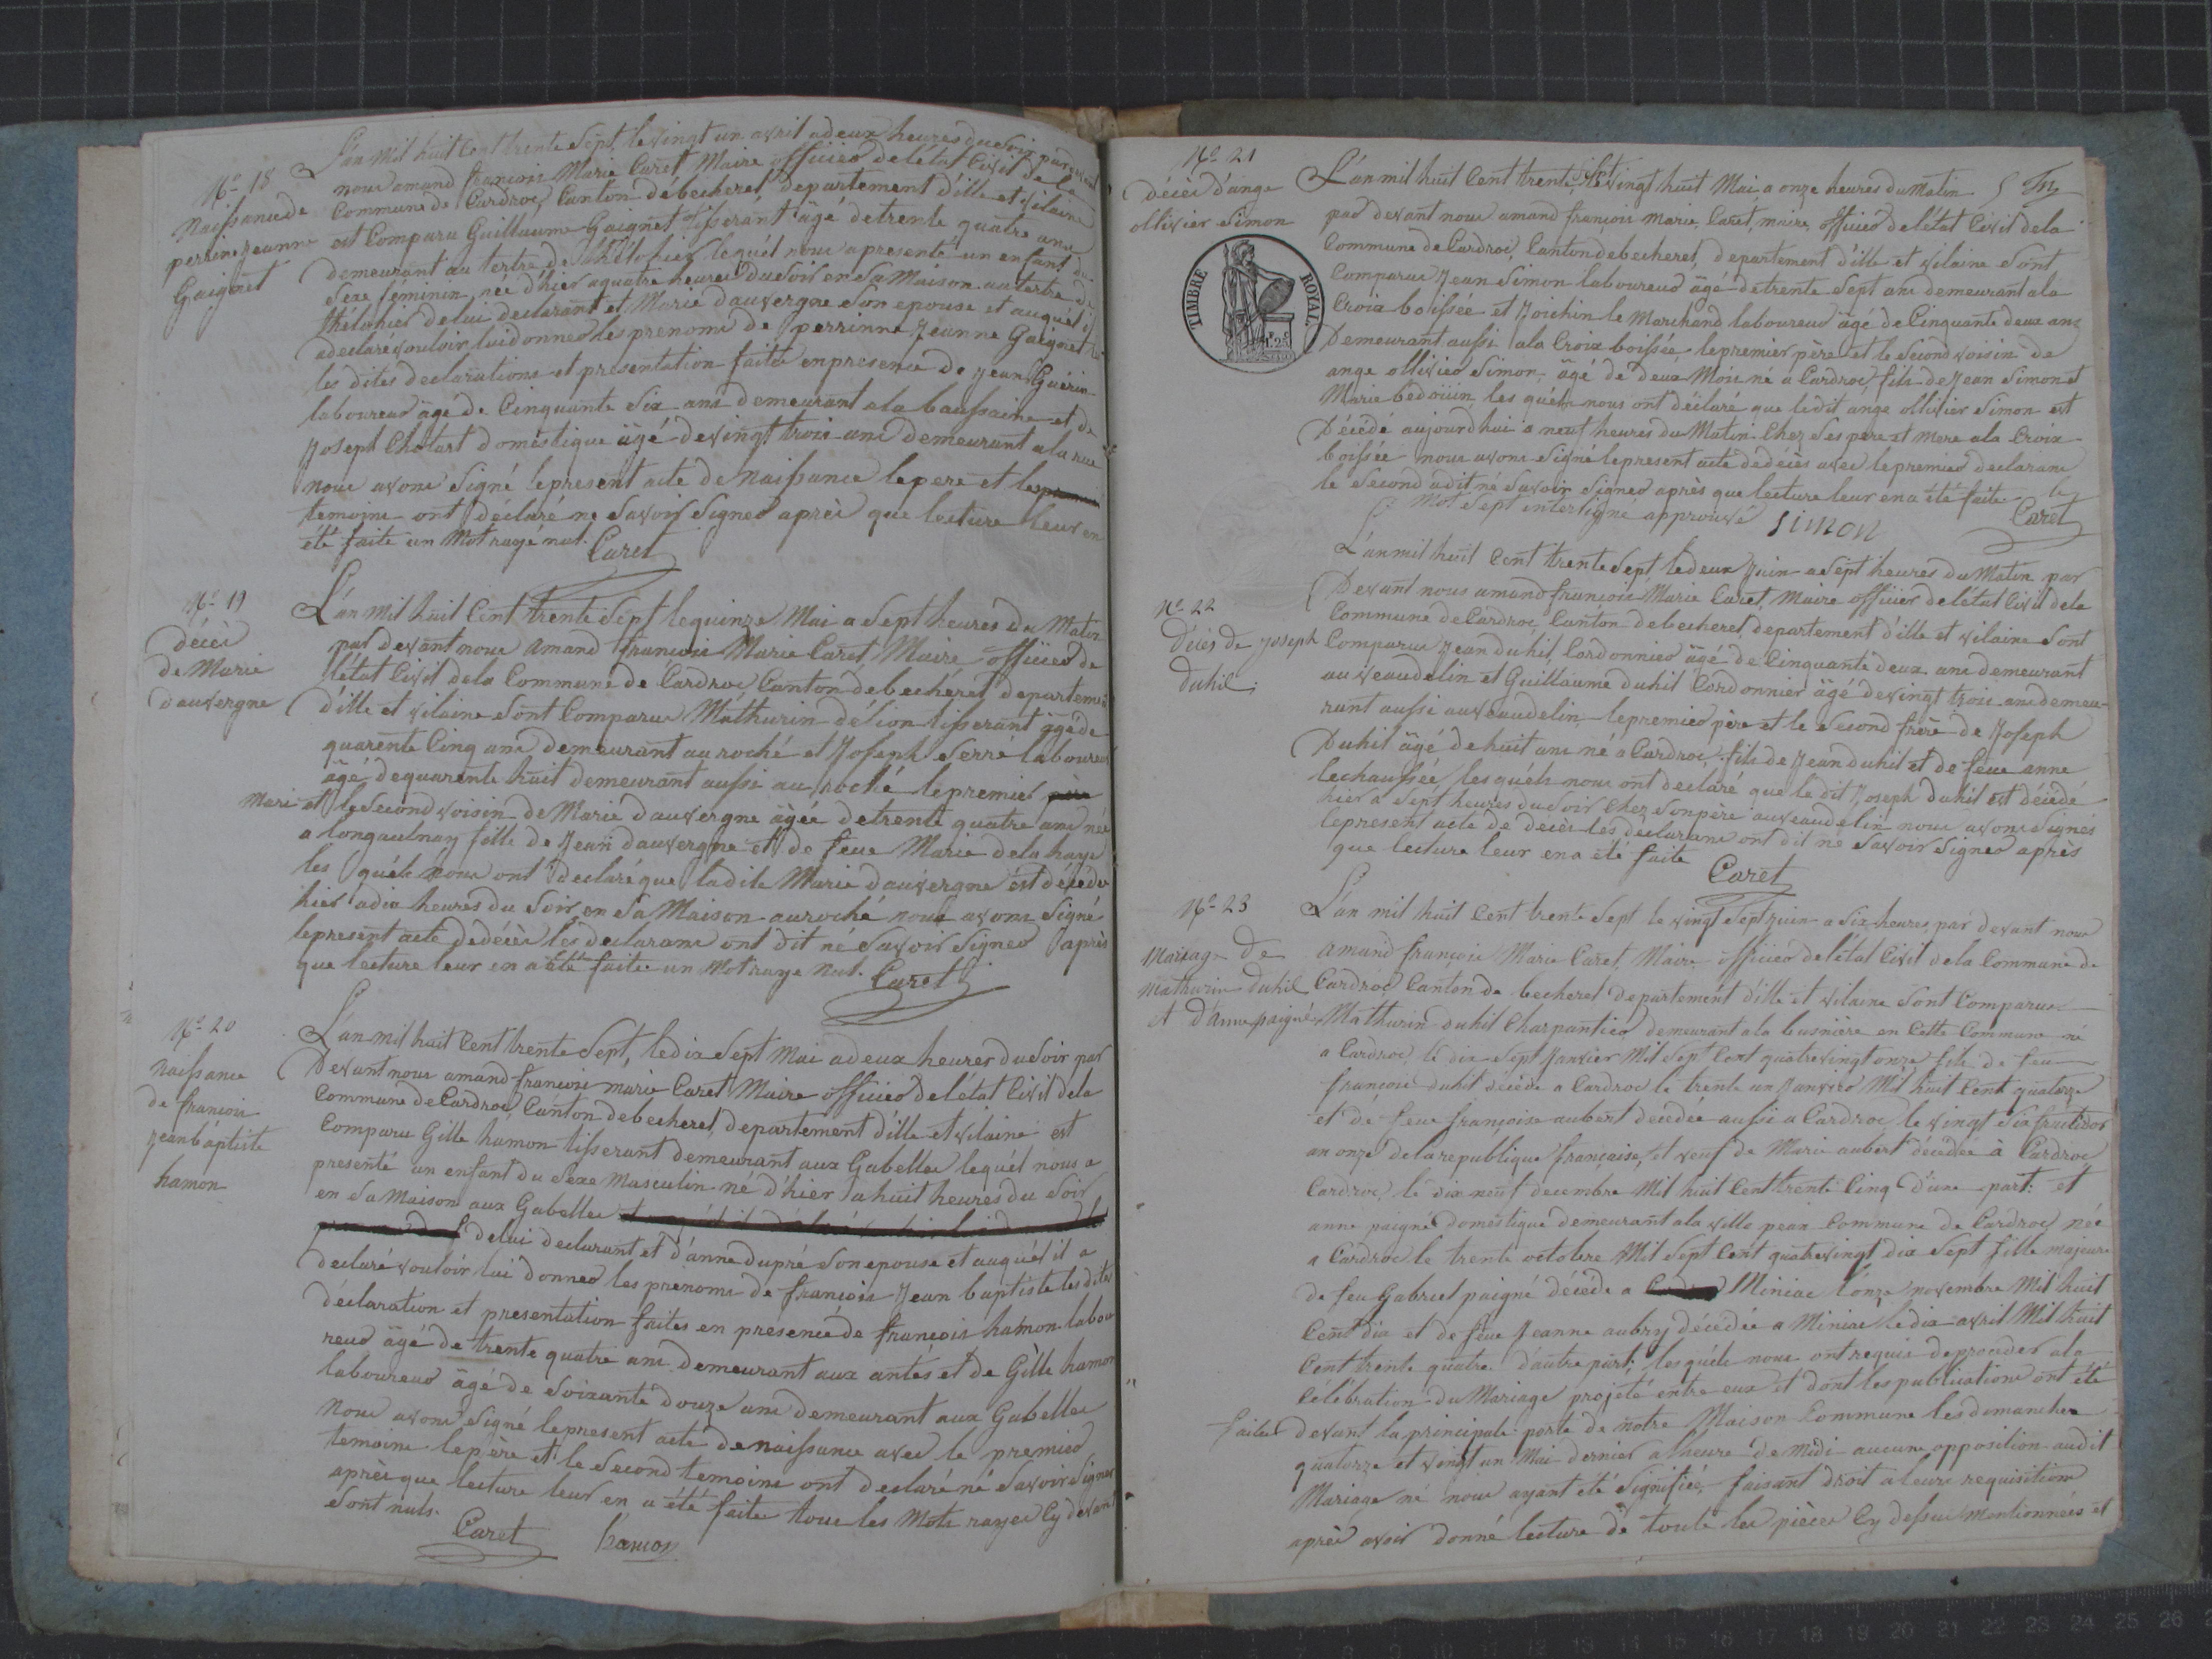 Nº 18
Naissance de
perrine jeanne
Gaignet
L'an mil huit Cent trente Sept, le vingt un avril a deux heures du Soir par devant
nous amand françois Marie Caret, Maire officier de l'état Civil de la
Commune de Cardroc, Canton de becherel, departement d'ille et vilaine
est Comparu Guillaume Gaignet tisserant âgé de trente quatre ans
demeurant au tertre de lequel nous a presenté un enfant du
Sexe féminin née d'hier a quatre heures du Soir en Sa Maison au tertre de
de lui declarant et Marie dauvergne Son epouse et auquel il
a declaré vouloir lui donner les prenoms de perrinne Jeanne Gaignet
les dites declarations et presentation faites en presence de Jean Guérin
laboureur âgé de Cinquante Six ans demeurant a la baussaine et de
Joseph Chotart doméstique âgé de vingt trois ans demeurant a la rue
nous avons Signé le present acte de Naissance le pere et les
temoins ont déclaré ne Savoir Signer après que lecture leur en
été faite un Mot rayé nul. Caret
Nº 19
décès
de Marie
dauvergne
L'an mil huit Cent trente Sept le quinze Mai a Sept heures du Matin
par devant nous amand françois Marie Caret, Maire officier de
l'état Civil de la Commune de Cardroc, Canton de becherel, departement
d'ille et vilaine Sont Comparus Mathurin délion tisserant âgé de
quarente Cinq ans demeurant au roché et Joseph Serre laboureur
âgé de quarente huit demeurant aussi au roché le premier père
mari et le Second voisin de Marie dauvergne âgée de trente quatre ans née
a longaulnay fille de Jean dauvergne et de feue Marie delahaye
les quels nous ont declaré que la dite Marie dauvergne est décédée
hier a dix heures du Soir en Sa Maison au roché nous avons Signé
le present acte de décès les declarans ont dit né Savoir Signer après
que lecture leur en a été faite un Mot rayé Nul. Caret
Nº 20
naissance
de françois
jean bâptiste
hamon
L'an mil huit Cent trente Sept, le dix Sept Mai a deux heures du Soir par
Devant nous amand françois marie Caret Maire officier de l'état Civil de la
Commune de Cardroc, Canton de becherel, departement d'ille et vilaine est
Comparu Gille hamon tisserant demeurant aux Gabelles lequel nous a
presenté un enfant du Sexe Masculin né d'hier a huit heures du Soir
en Sa Maison aux Gabelles
de lui declarant et d'anne dupré Son epouse et auquel il a
declaré vouloir lui donner les prenoms de françois Jean baptiste les dites
déclaration et presentation faites en presence de françois hamon labou
reur âgé de trente quatre ans demeurant aux antés et de Gille hamon
laboureur âgé de Soixante douze ans demeurant aux Gabelles
Nous avons Signé le present acte de naissance avec le premier
temoins le père et le Second temoins ont declaré né Savoir Signer
après que lecture leur en a été faite tous les Mots rayés Cy devant
Sont nuls.
Caret hamon
Nº 21
décès d'ange
ollivier Simon
TIMBRE ROYAL
L'an mil huit Cent trente, Sept le vingt huit Mai, a onze heures du Matin
par devant nous amand françois marie Caret, maire, officier de l'état Civil de la
Commune de Cardroc, Canton de becherel, departement d'ille et vilaine Sont
Comparus Jean Simon laboureur âgé de trente Sept ans demeurant a la
Croix boissée et Joichin le Marchand laboureur âgé de Cinquante deux ans
Demeurant aussi a la Croix boissée le premier père et le Second voisin de
ange ollivier Simon, âgé de deux Mois né a Cardroc fils de Jean Simon et
Marie bedouin les quels nous ont déclaré que le dit ange ollivier Simon est
Décédé aujourd'hui a neuf heures du Matin Chez Ses pere et mere a la Croix
boissée nous avons Signé le present acte de décès avec le premier declarant
le Second a dit ne Savoir Signer après que lecture leur en a été faite le
Mot Sept interligne approuvé Simon Caret
Nº 22
décès de joseph
duhil
L'an mil huit Cent trente Sept le deux Juin a Sept heures du Matin par
Devant nous amand françois Marie Caret, Maire officier de l'état Civil de la
Commune de Cardroc, Canton de becherel, departement d'ille et vilaine Sont
Comparus Jean duhil, Cordonnier âgé de Cinquante deux ans demeurant
au veaudelin et Guillaume duhil Cordonnier âgé de vingt trois ans demeu-
rant aussi au veaudelin, le premier père et le Second frère de Joseph
Duhil âgé de huit ans né a Cardroc, fils de Jean duhil et de feue anne
lechaussée, les quels nous ont declaré que le dit Joseph duhil est décédé
hier a Sept heures du Soir Chez Son père au veaudelin nous avons Signés
le present acte de décès les declarans ont dit né Savoir Signer après
que lecture leur en a été faite Caret
Nº 23
Mariage de
Mathurin duhil
et d'anne paigné
L'an mil huit Cent trente Sept le vingt Sept juin a Six heures, par devant nous
amand françois Marie Caret, Maire officier de l'état Civil de la Commune de
Cardroc Canton de becherel departement d'ille et vilaine Sont Comparus
Mathurin duhil Charpantier demeurant a la busnière en Cette Commune né
a Cardroc le dix Sept Janvier Mil Sept Cent quatrevingt onze fils de feu
françois duhil décédé a Cardroc le trente un Janvier Mil huit Cent quatorze
et de feue françoise aubert décédée aussi a Cardroc, le vingt Six fructidor
an onze de la republique française, et veuf de Marie aubert décédée à Cardroc
Cardroc, le dix neuf decembre Mil huit Cent trente Cinq d'une part: et
anne paigné doméstique demeurant a la ville pean Commune de Cardroc née
a Cardroc le trente octobre Mil Sept Cent quatrevingt dix Sept fille majeure
de feu Gabriel paigné décédé a Miniac l'onze novembre Mil huit
Cent dix et de feue Jeanne aubry décédée a Miniac le dix avril Mil huit
Cent trente quatre d'autre part; les quels nous ont requis de proceder a la
Célébration du Mariage projeté entre eux et dont les publications ont été
faites devant la principale porte de notre Maison Commune les dimanches
quatorze et vingt un Mai dernier a l'heure de Midi aucune opposition audit
Mariage ne nous ayant été Signifiée, faisant droit a leurs requisitions
après avoir donné lecture de toute les pièces Cy dessus mentionnées et